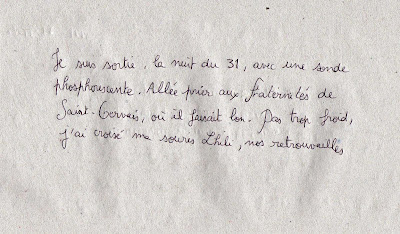 Je suis sortie, la nuit du 31, avec une sonde
phosphorescente. Allée prier aux fraternités de
Saint-Gervais, où il faisait bon. Pas trop froid,
j'ai croisé ma soeurs Lhili, nos retrouvailles